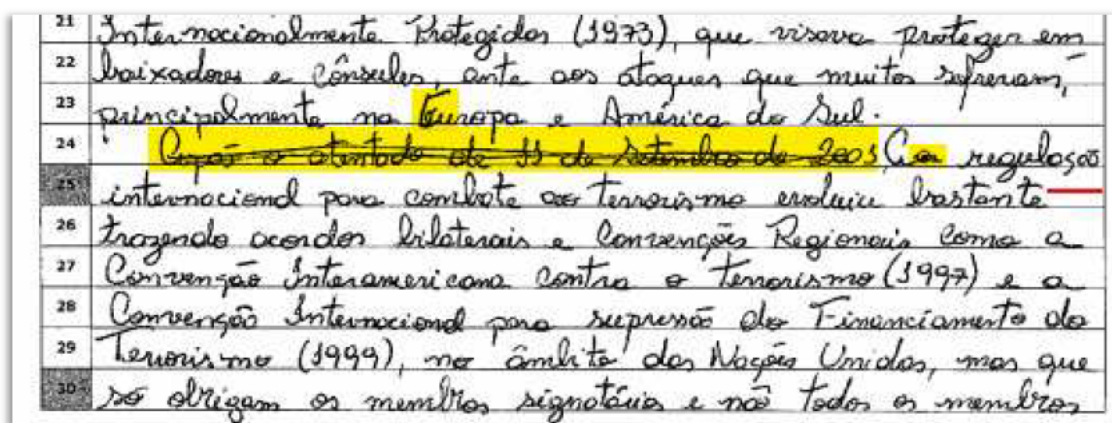 21 Internacionalmente Protegidas (1973), que visava proteger em
22 baixadores e Cônsules, ante aos ataques que muitos sofreram,
23 principalmente na Europa e América do Sul.
24 Após o atentado de 11 de Setembro de 2001, a regulação
25 internacional para combate ao terrorismo evoluiu bastante
26 trazendo acordos bilaterais e Convenções Regionais como a
27 Convenção Interamericana Contra o Terrorismo (1997) e a
28 Convenção Internacional para supressão do Financiamento do
29 Terrorismo (1999), no âmbito das Nações Unidas, mas que
30 só obrigam os membros signatários e não todos os membros